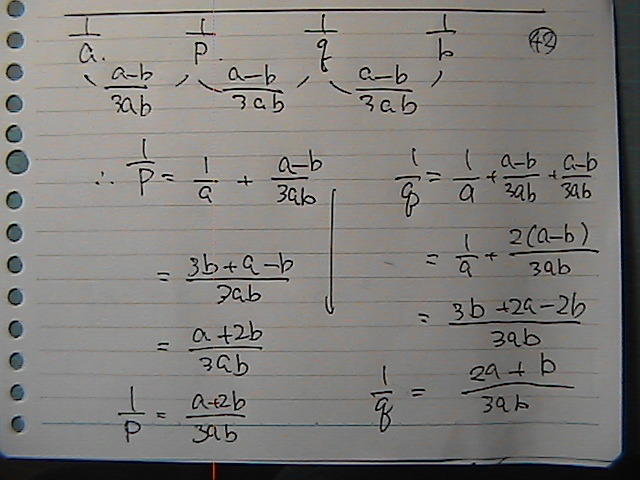 1/a. 1/p. 1/q 1/b 42
(a-b)/3ab (a-b)/3ab (a-b)/3ab
∴ 1/p = 1/a + (a-b)/3ab 1/q = 1/a + (a-b)/3ab + (a-b)/3ab
= (3b+a-b)/3ab = 1/a + 2(a-b)/3ab
= (a+2b)/3ab = (3b+2a-2b)/3ab
1/p = (a+2b)/3ab 1/q = (2a+b)/3ab